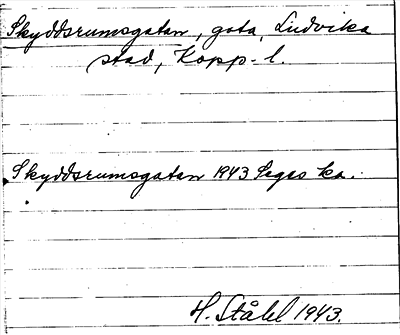 Skyddsrumsgatan, gata, Ludvika
stad, Kopp-l.
Skyddsrumsgatan 1943 Seges ka.
H. Ståhl 1943.